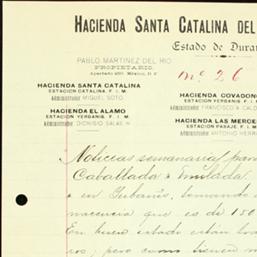 HACIENDA SANTA CATALINA DEL
Estado de Duran
PABLO MARTINEZ DEL RIO
PROPIETARIO.
Apartado México, D. F.
no. 26
HACIENDA SANTA CATALINA
ESTACION CATALINA. F. I. M.
Administrador MIGUEL SOTO.
HACIENDA EL ALAMO
ESTACION YERBANIS. F. I. M.
Administrador DIONISIO SALAS
HACIENDA COVADON
ESTACION YERBANIS. F. I. M.
Administrador FRANCISCO A. CALD
HACIENDA LAS MERCE
ESTACION PASAJE. F. I. M
Administrador ANTONIO HERR
Noticias semanarias para
Caballada
en
que es de 150
En buen estado están
pero como tienen